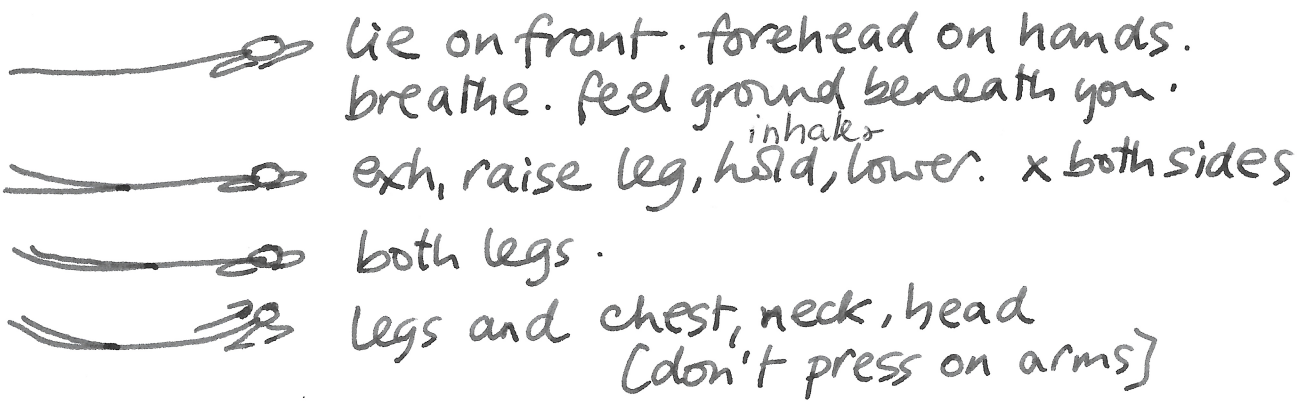 lie on front. forehead on hands.
breathe. feel ground beneath you.
inhale &
exh, raise leg, hold, lower. x both sides
both legs.
legs and chest, neck, head
[don't press on arms]